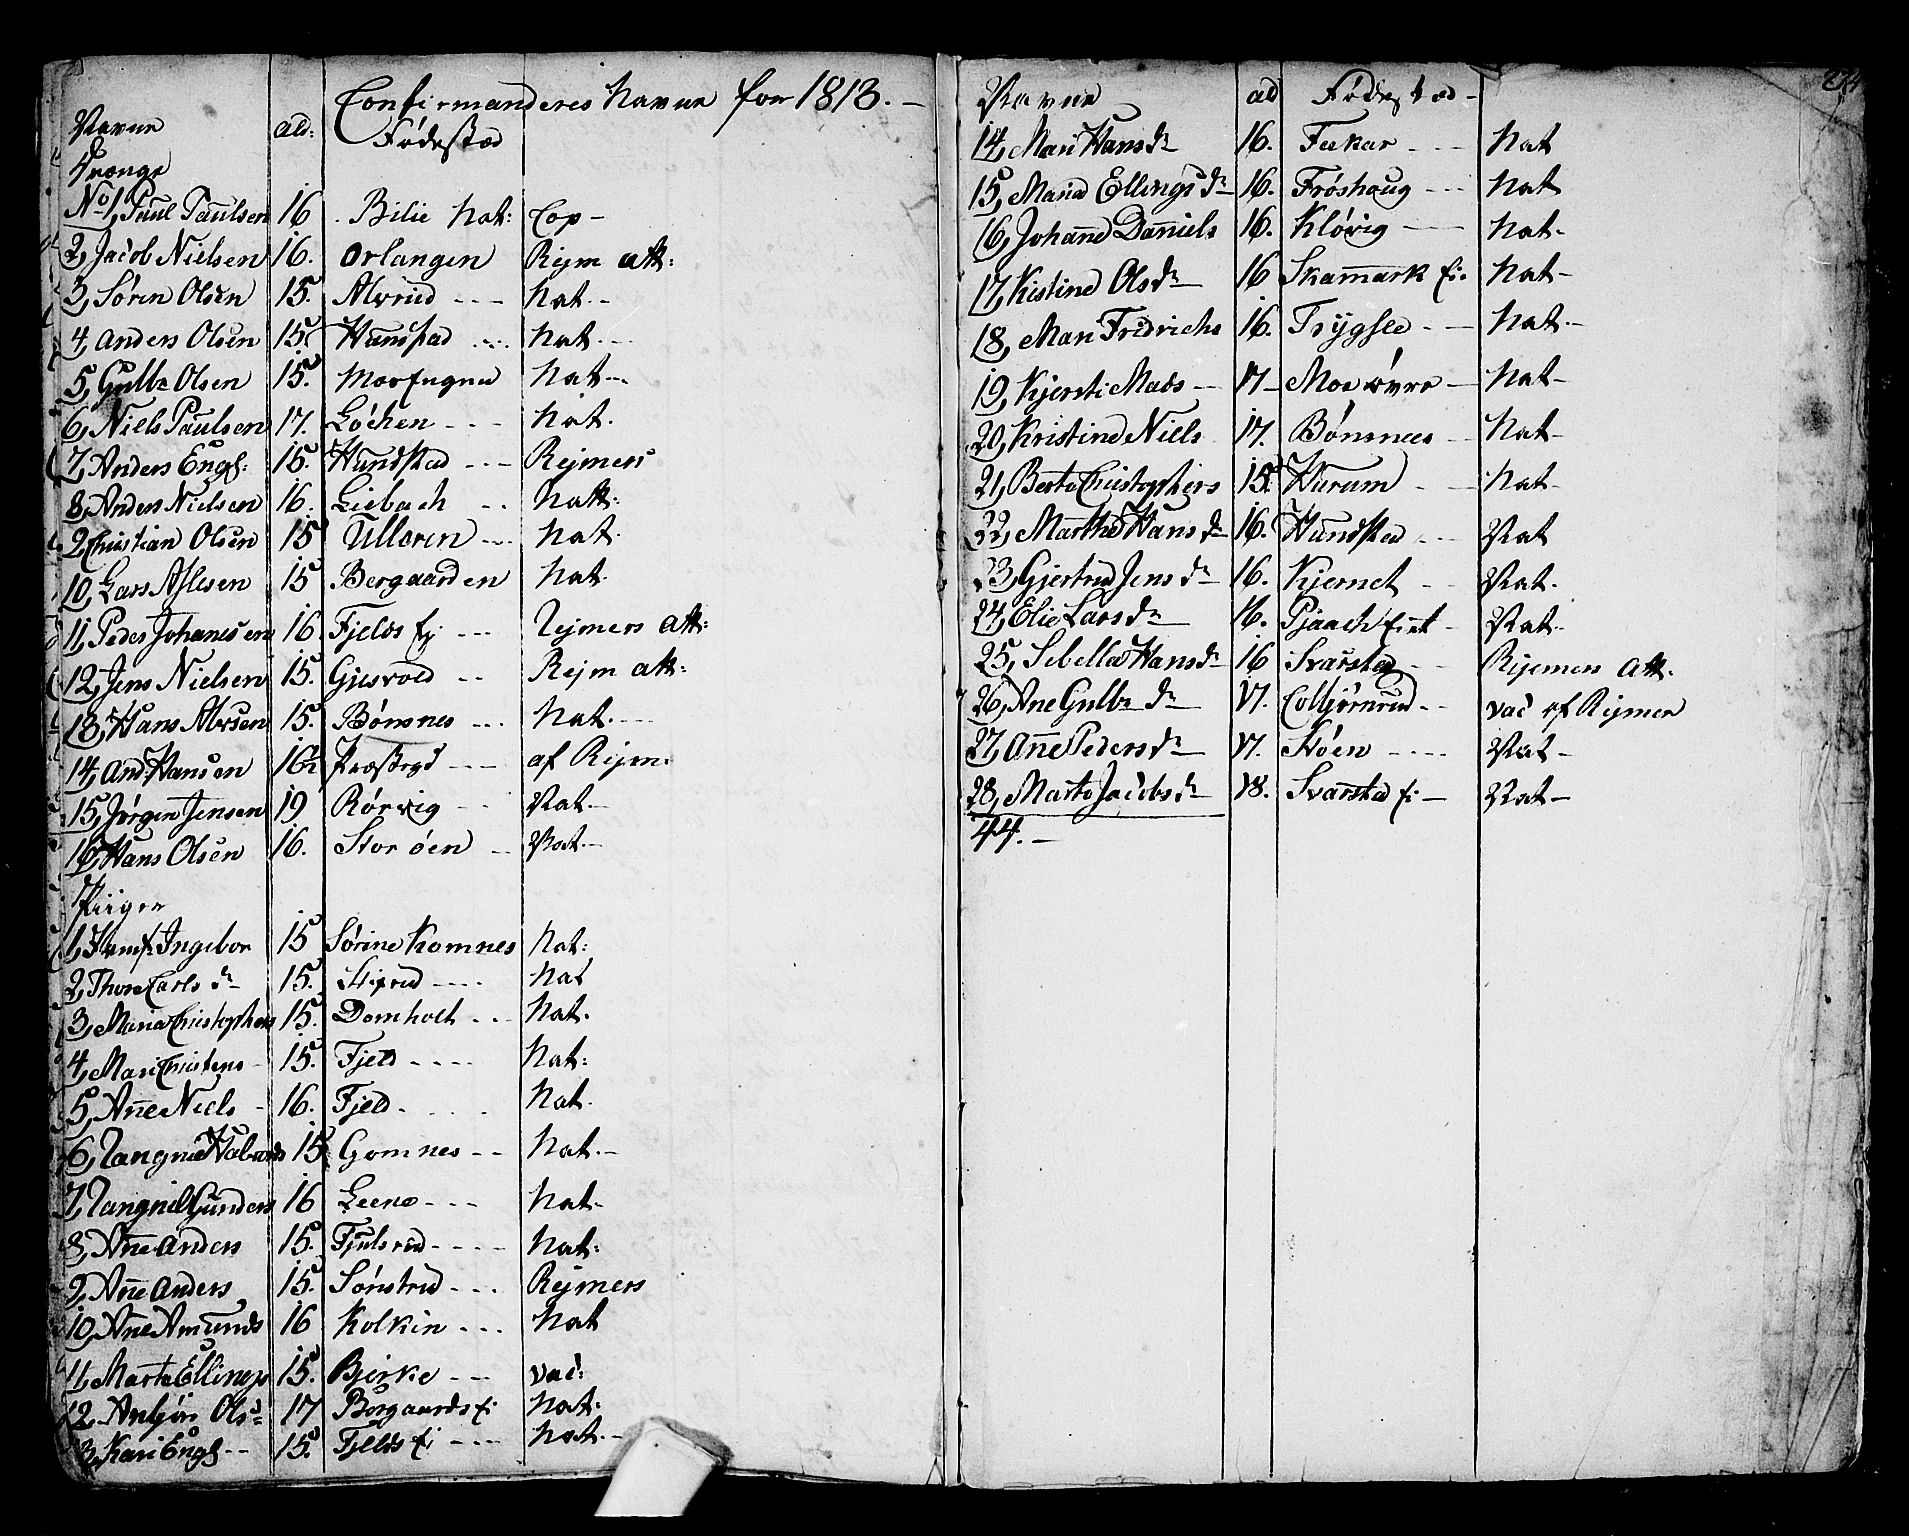 Confirmanderes Navne for 1813. –
Navne ald: Fødestæd
Drænge
No 1, Paul Paulsen 16 Bilie Nat: Cop –
2, Jacob Nielsen 16. Orlangen Rejm att:
3, Søren Olsen 15. Alvrud --- Nat. –
4, Anders Olsen 15 Hunstad --- Nat. --
5, Gulbr Olsen 15. Nat --
6, Niels Paulsen 17. Løchen --- Nat.
7, Anders Engl: 15. Hundstad --- Rejmers
8, Anders Nielsen 16. Liebach -- Natt:
9, Christian Olsen 15 Ulleren --- Nat.
10, Lars Aslesen 15 Bergaarden Nat.
11, Peder Johanesen 16 Fjelds Ej --- Rejmers Att:
12, Jens Nielsen 15. Gjesvold -- Rejm Att:
13, Hans Alvsen 15. Bønsnes --- Nat. --
14, And: Hansen 16½ --- af Rejm.
15, Jørgen Jensen 19 Rørvig -- Nat. –
16, Hans Olsen 16. Storøen – Nat. –
Piiger
1, Jomf: Ingebor 15 Sørine Komnes Nat:
2, Thore Carls dr 15. Stixrud --- Nat
3, Maria Christophers 15. Domholt --- Nat.
4, Mari Christens – 15. Fjeld ---- Nat:
5, Anne Niels – 16. Fjeld. --- Nat.
6, Rangnild Halvords 15 Gomnes -- Nat. –
7, Rangnild Gunders 16 Leene --- Nat.
8, Anne Anders 15. Fjulsrud ---- Nat:
9, Anne Anders 15. Sønstrud --- Rejmers
10, Anne Amunds 16 Kolkin --- Nat
11, Marta Ellings 15. Bjerke -- vac:
12, Anbjør Ols: 17 Borgaards Ei Nat:
13, Kari Engl -- 15. Fjelds Ei --- Nat. –
274
Navne ald Fødestæd –
14, Mari Hans dr 16. Fekar --- Nat
15, Maria Ellings dr 16. Frøshaug --- Nat
16, Johanne Daniels 16. Kløvig --- Nat.
17, Kistine Ols dr 16 Skamark Ei. Nat –
18, Mari Fridrichs 16. Trygsle -- Nat. –
19, Kjersti Mads -- 17 – Moe øvre – Nat –
20, Kristine Niels 17. Bønsnees -- Nat –
21, Berta Christophers 15. Hurum -- Nat –
22, Marthe Hans dr 16. Hundstad --- Nat
23, Gjertrud Jens dr 16. Kjernet -- Nat.
24, Elie Lars dr 16. Pjaach Eiet – Nat.
25, Sebella Hans dr 16 Svarstad -- Rijemers Att.
26, Ane Gulbr dr 17. Colbjørnrud -- vac af Rijmer
27, Anne Peders dr 17. Støen ---- Nat –
28, Marta Jacobs dr 18. Svarstad Ei – Nat –
44. –